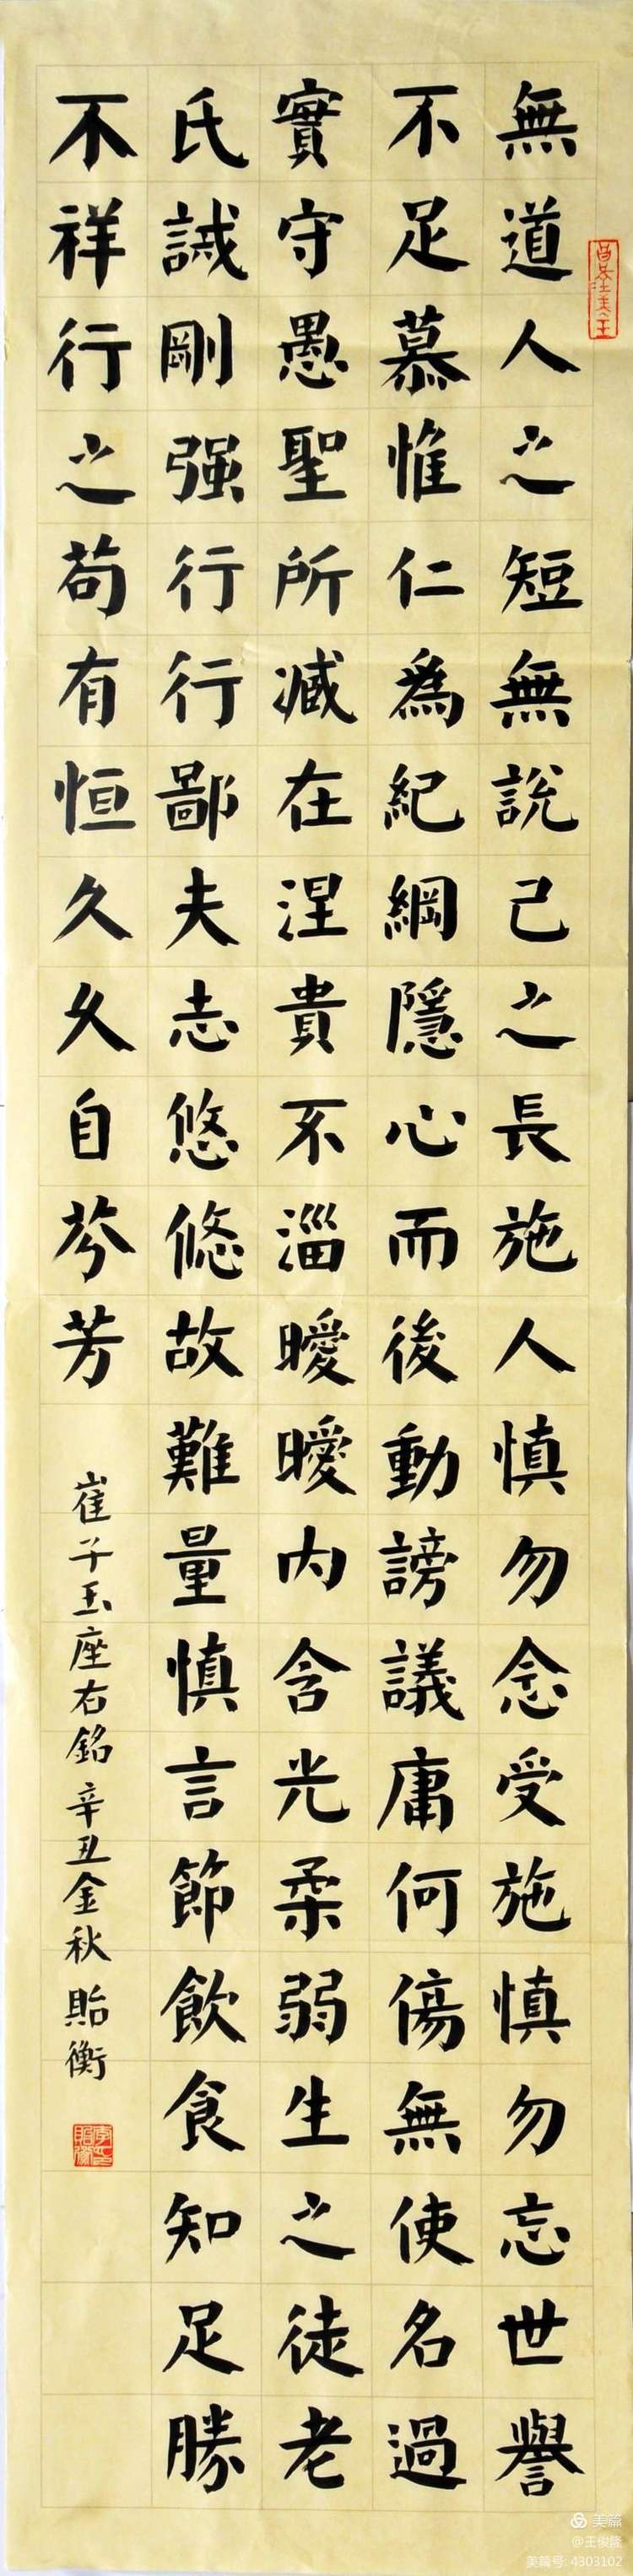 無道人之短無說己之長施人慎勿念受施慎勿忘世譽
不足慕惟仁爲紀綱隱心而後動謗議庸何傷無使名過
實守愚聖所臧在涅貴不淄曖曖内含光柔弱生之徒老
氏誡剛强行行鄙夫志悠悠故難量慎言節飲食知足勝
不祥行之苟有恒久久自芬芳
崔子玉座右銘 辛丑金秋 貽衡
美篇
@王俊隆
美篇号: 4303102